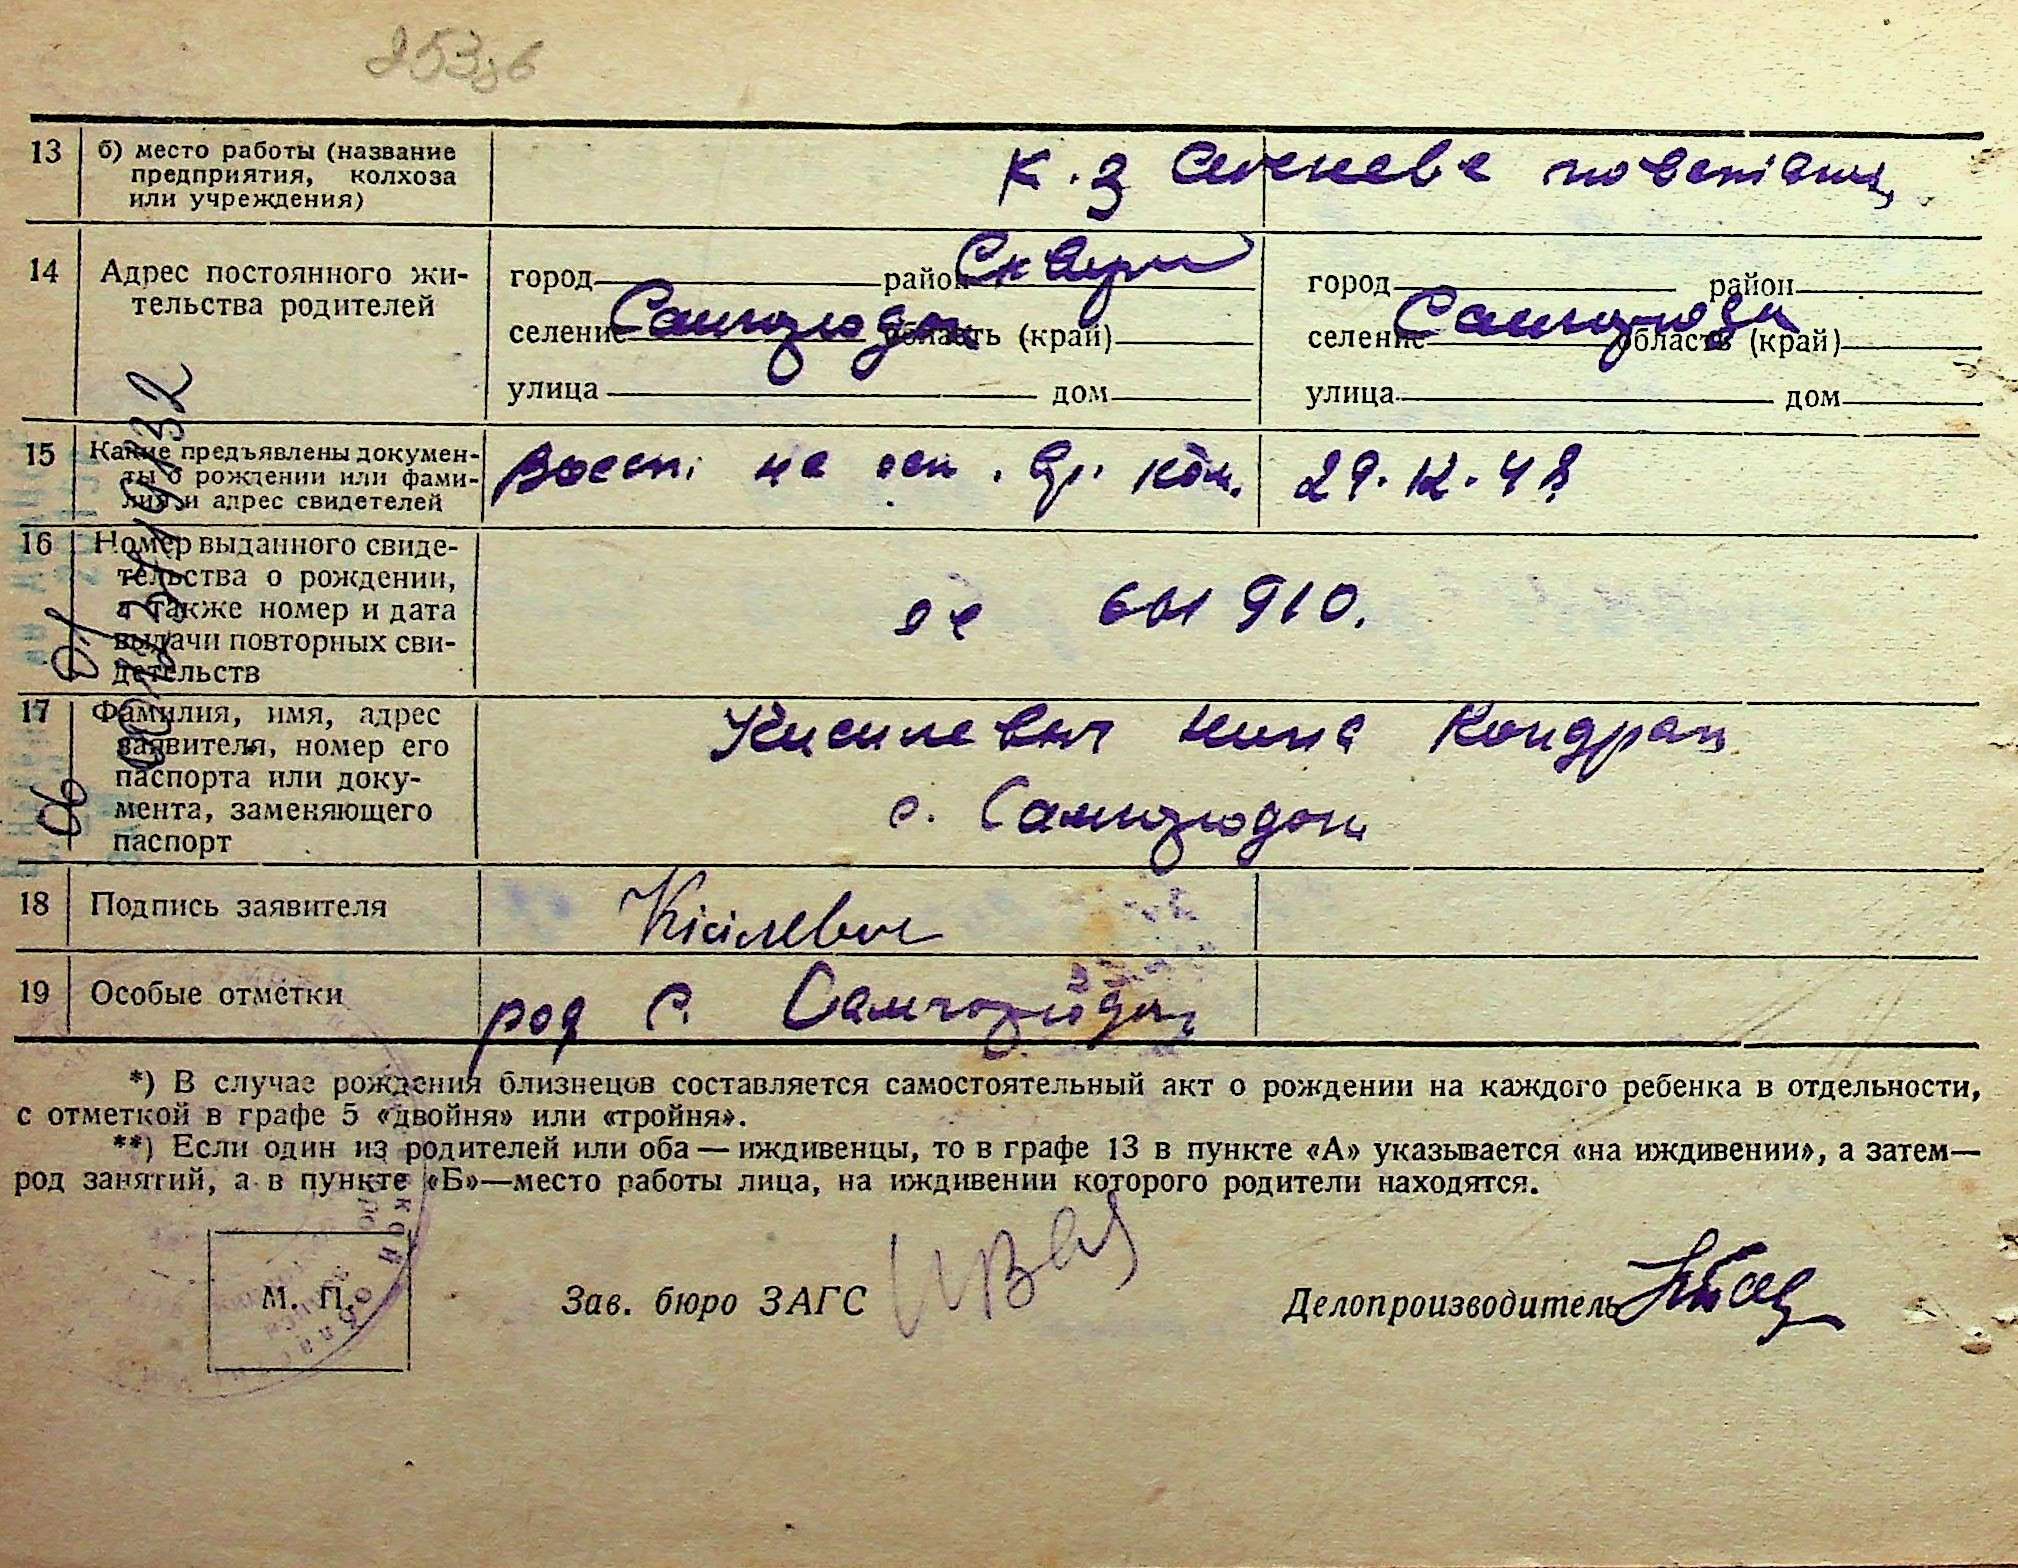 13 б) место работы (название
предприятия, колхоза
или учреждения)
к.з
14 Адрес постоянного жи-
тельства родителей
город район Сквир
селение Самгородок область (край)
улица дом
город район
селение Самгородок область (край)
улица дом
15 Какие предъявлены докумен-
ты о рождении или фами-
лия и адрес свидетелей
Восст. на осн. вр. ком. 29.12.48
16 Номер выданного свиде-
тельства о рождении,
а также номер и дата
выдачи повторных сви-
детельств
910.
17 Фамилия, имя, адрес
заявителя, номер его
паспорта или доку-
мента, заменяющего
паспорт
Кисилевич Нина Кондрат
с. Самгородок
18 Подпись заявителя
Кісілевич
19 Особые отметки
род с. Самгородок
*) В случае рождения близнецов составляется самостоятельный акт о рождении на каждого ребенка в отдельности,
с отметкой в графе 5 «двойня» или «тройня».
**) Если один из родителей или оба — иждивенцы, то в графе 13 в пункте «А» указывается «на иждивении», а затем—
род занятий, а в пункте «Б»—место работы лица, на иждивении которого родители находятся.
М. П.
Зав. бюро ЗАГС
Делопроизводитель